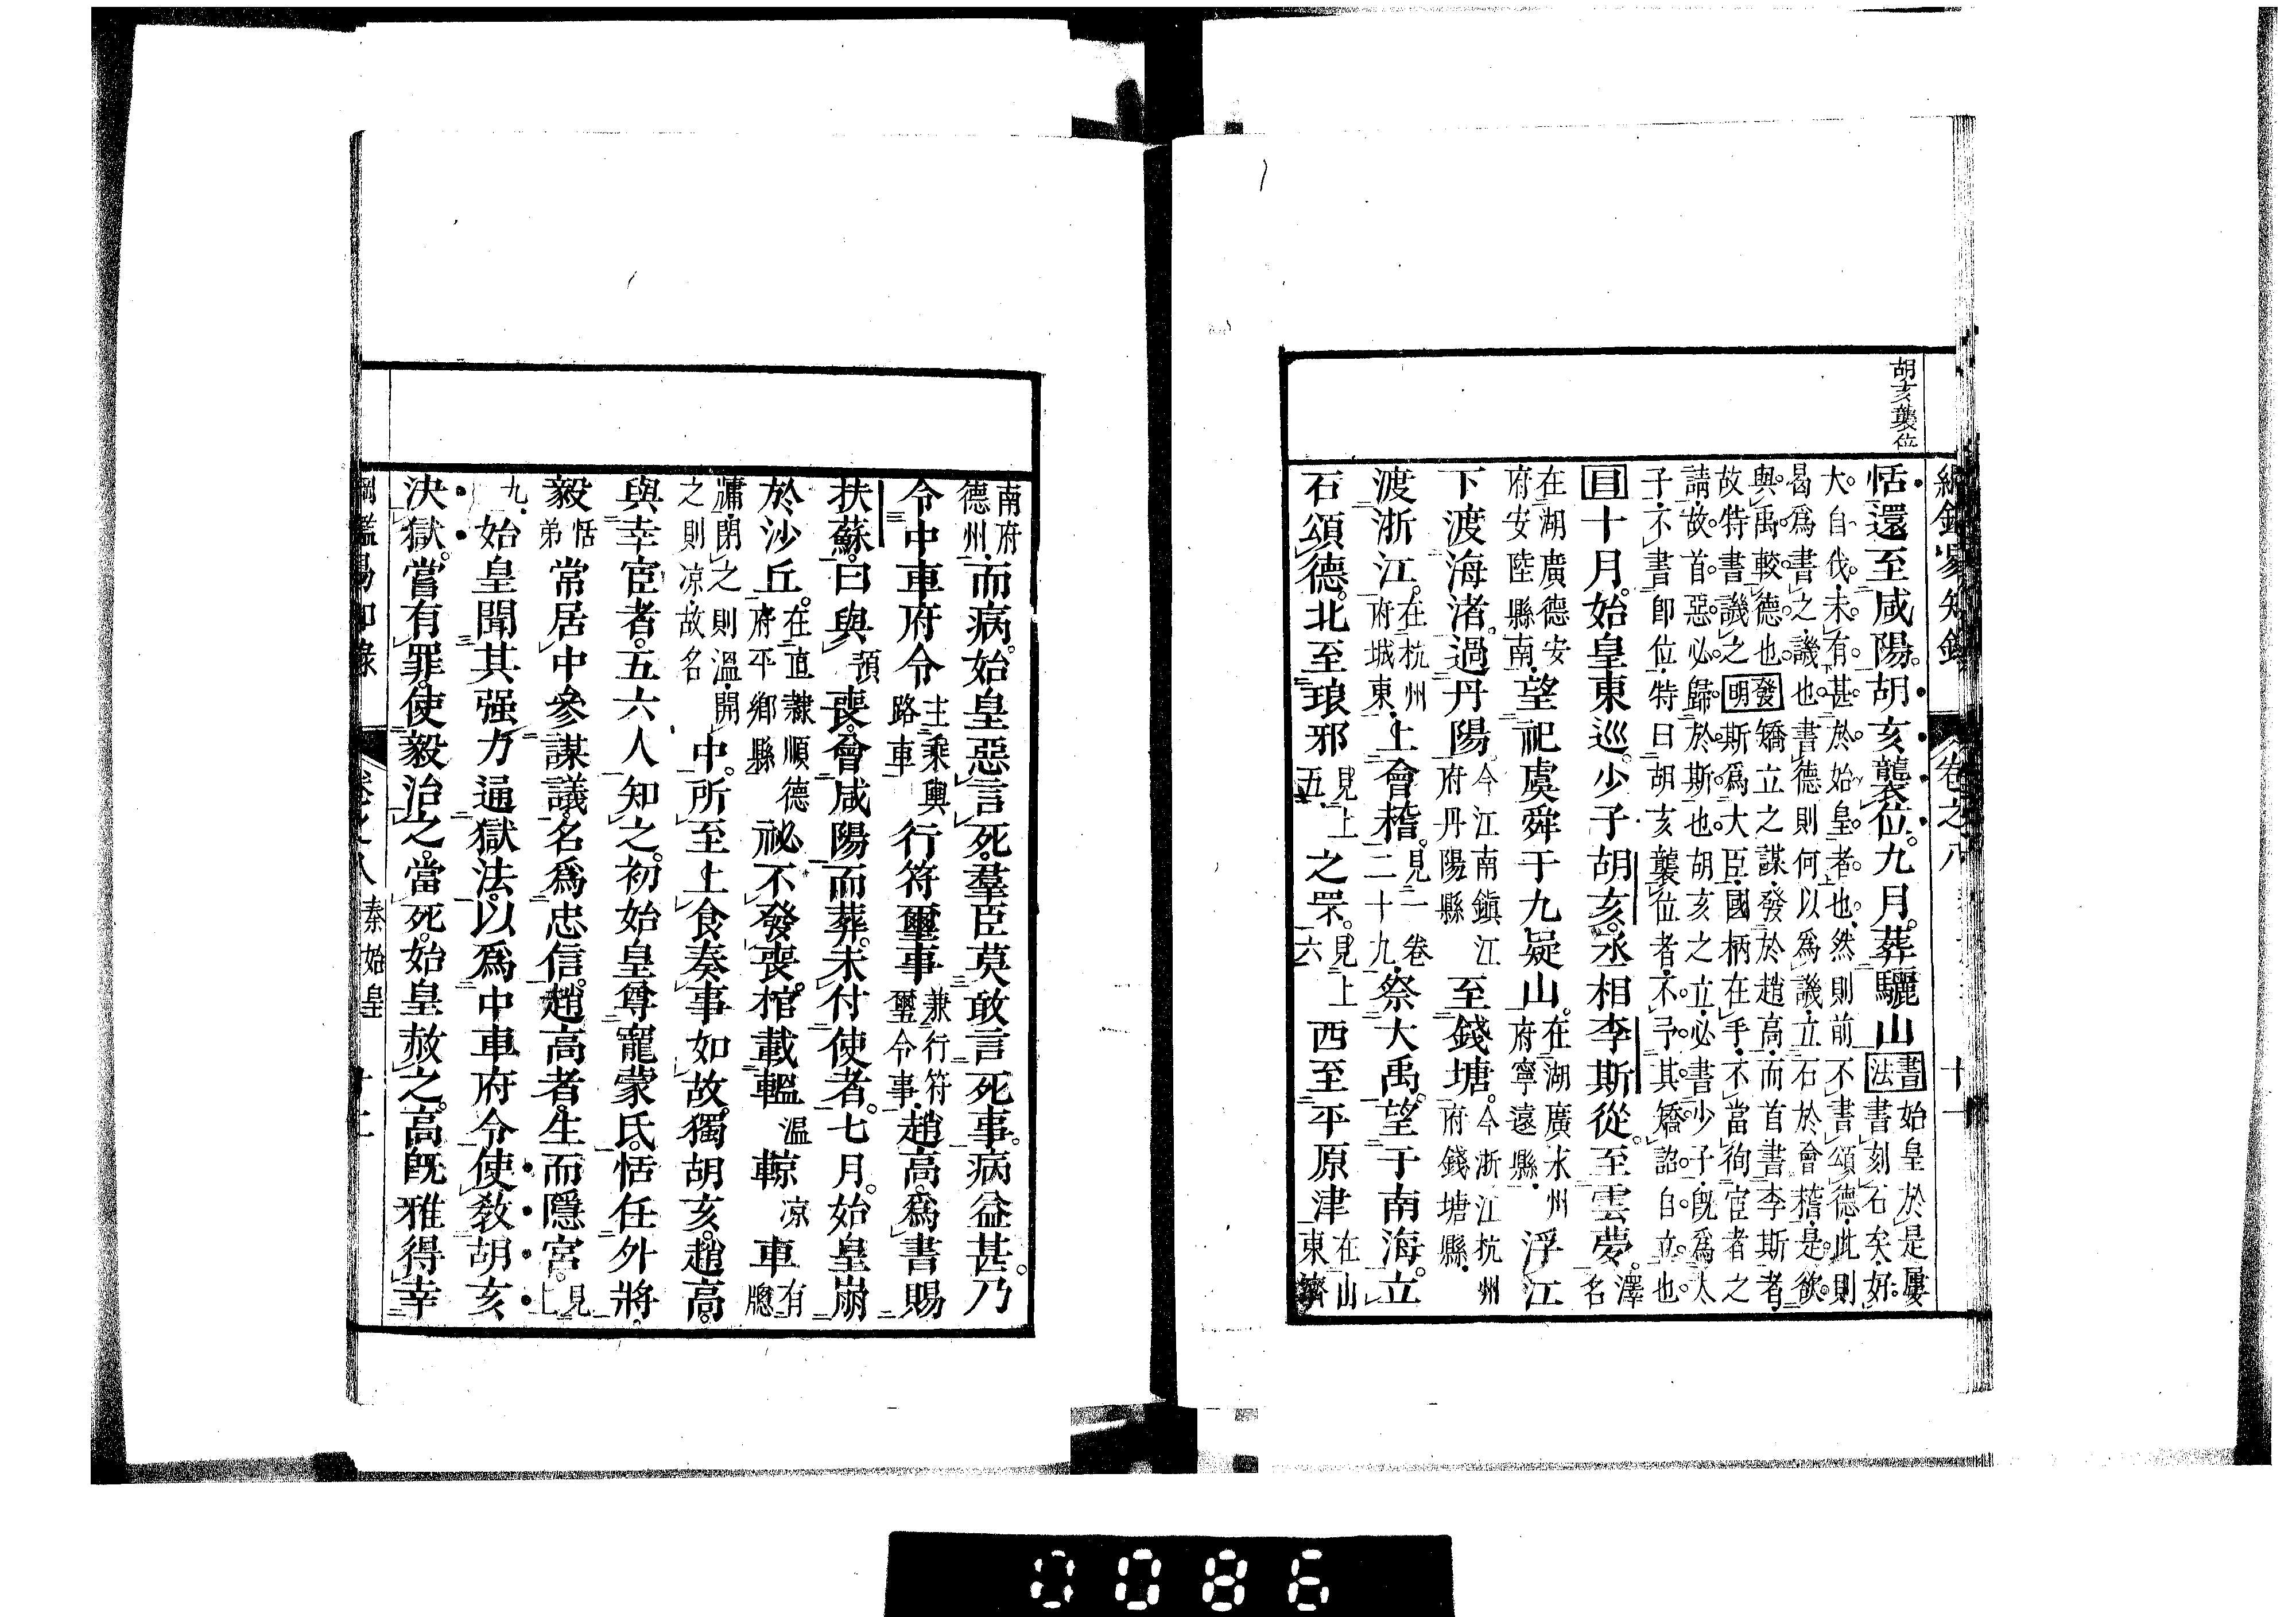 胡亥襲位
卷之八
十一
恬還至咸陽。胡亥襲位。九月。葬驪山書法始皇於是屢書刻石矣。好
大自伐。未有甚於始皇者也。然則前不書頌德。此則
曷爲書之。譏也。書德則何以爲譏。立石於會稽。是欲
與禹較德也。故特書譏之。發明矯立之謀。發於趙高。而首書李斯者。斯爲大臣。國柄在手。不當徇宦者之
請。故首惡必歸於斯也。胡亥之立。必書少子。旣爲人
子。不書卽位。特曰胡亥襲位者。不予其矯詔自立也。
目十月。始皇東巡。少子胡亥。丞相李斯從。至雲夢。澤名
在湖廣德安府安陸縣南。望祀虞舜于九疑山。在湖廣永州府寧遠縣。浮江
下渡海渚。過丹陽。今江南鎭江府丹陽縣至錢塘。今浙江杭州府錢塘縣。
渡浙江。在杭州府城東。上會稽。見一卷二十九。祭大禹。望于南海。立
石頌德。北至琅邪見上五。之罘。見上六西至平原津在山東濟
南府德州。而病。始皇惡言死。羣臣莫敢言死事。病益甚。乃
令中車府令主乘輿路車行符璽事兼行符璽令事。趙高。爲書賜
扶蘇。曰與預喪。會咸陽而葬。未付使者。七月。始皇崩
於沙丘。在直隷順德府平鄉縣祕不發喪。棺載轀溫輬凉車有牎
牖。閉之則溫。開之則凉。故名中。所至上食奏事如故。獨胡亥。趙高。
與幸宦者。五六人知之。初始皇尊寵蒙氏。恬任外將。
毅恬弟常居中參謀議。名爲忠信。趙高者。生而隱宮。見上
九。始皇聞其强力通獄法。以爲中車府令。使敎胡亥
決獄。嘗有罪。使毅治之。當死。始皇赦之。高旣雅得幸
卷之八
秦始皇
0086